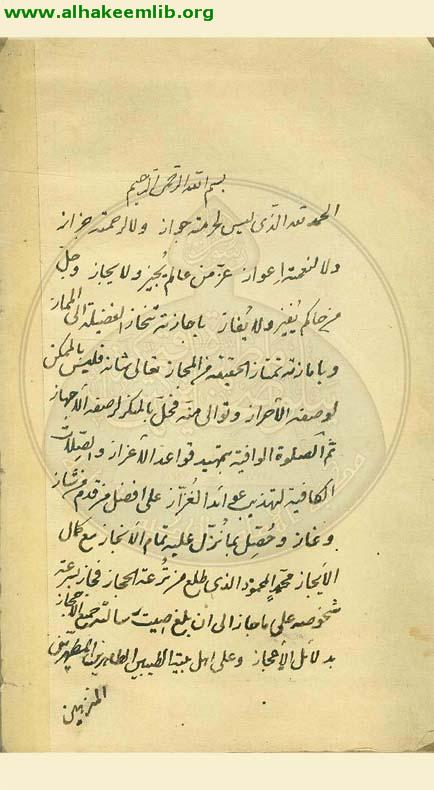 www.alhakeemlib.org
بسم الله الرحمن الرحيم
الحمد لله الذى ليس لحرمته جواز ولا لرحمته حزاز
ولا لنعمته اعواز عز من عالم يُجيز ولا يجاز وجلّ
من حاكم يُفيز ولا يُفاز باجازته تنحاز الفضيلة الى الممتاز
وبامازته تمتاز الحقيقة من المجاز تعالى شانه فليس بالممكن
لوصفه الأحراز وتوالى منّه فخلّ بالمنكر لوصفه الأجهاز
ثم الصلوة الوافية بتمهيد قواعد الأعزاز والصِلات
الكافية لتهذيب عوائد العُزّاز على افضل من قدم من شاز
وغاز وحُصِّل بما نُزّل عليه تمام الأنجاز مع كمال
الايجاز محمّد المحمود الذى طلع من نزعة الحجاز فحاز بسرعة
شخوصه على ما حاز الى ان بلغ صيت رسالته جميع الأحجاز
بدلائل الإعجاز وعلى اهل بيته الطيبين الطاهرين المطهرين
المنزهين